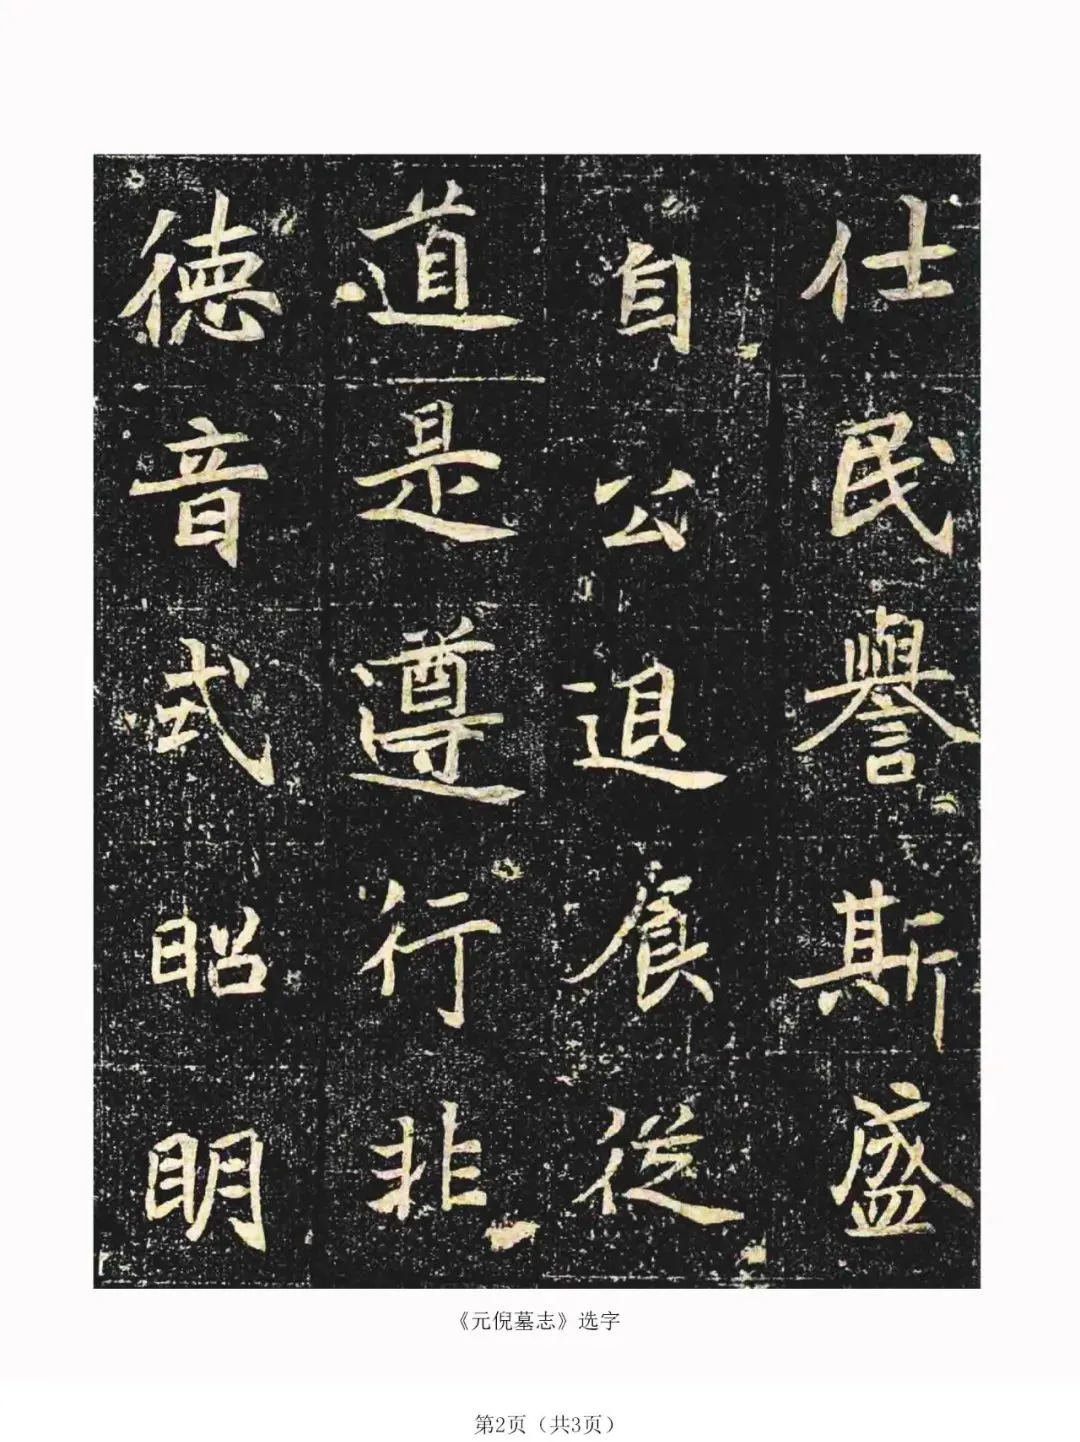 仕民譽斯盛
自公退食從
道是遵行非
德音式昭明
《元倪墓志》选字
第2页（共3页）